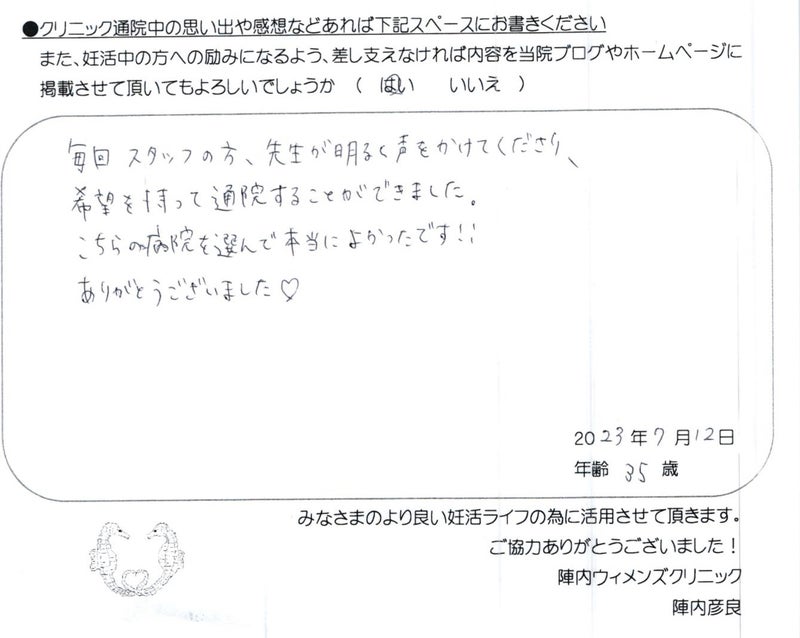 ●クリニック通院中の思い出や感想などあれば下記スペースにお書きください
また、妊活中の方への励みになるよう、差し支えなければ内容を当院ブログやホームページに
掲載させて頂いてもよろしいでしょうか ( はい いいえ )
毎回 スタッフの方、先生が明るく声をかけてくださり、
希望を持って通院することができました。
こちらの病院を選んで本当によかったです!!
ありがとうございました♡
2023年7月12日
年齢 35 歳
みなさまのより良い妊活ライフの為に活用させて頂きます。
ご協力ありがとうございました!
陣内ウィメンズクリニック
陣内彦良